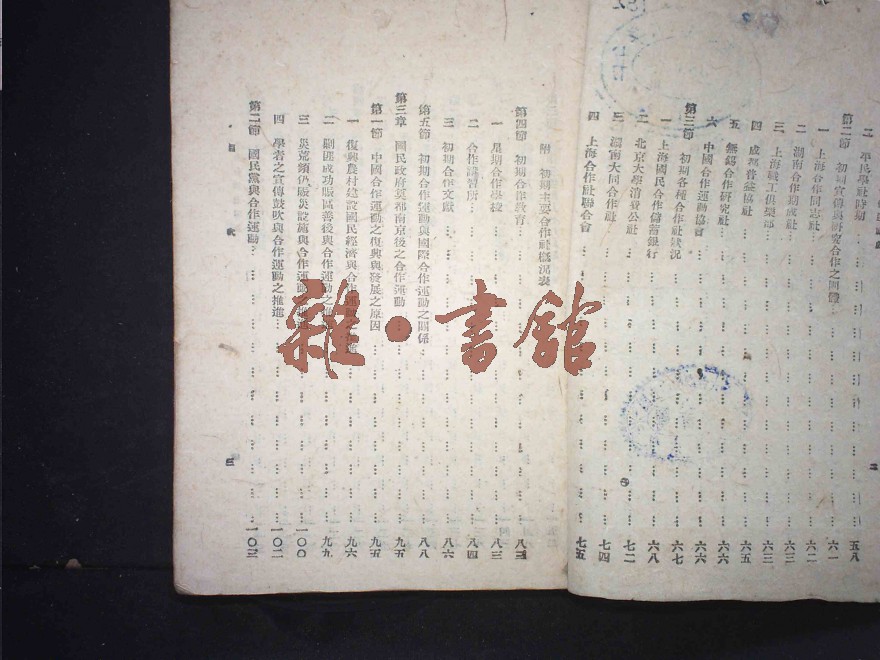 二 平民學社時期 五八
第二節 初期宣傳與研究合作之團體 六一
一 上海合作同志社 六一
二 湖南合作期成社 六二
三 上海職工俱樂部 六三
四 成都普益協社 六五
五 無錫合作研究社 六六
六 中國合作運動協會 六六
第三節 初期各種合作社狀況 六七
一 上海國民合作儲蓄銀行 六八
二 北京大學消費公社 七二
三 湖南大同合作社 七四
四 上海合作社聯合會 七五
二
附 初期主要合作社概況表
第四節 初期合作教育 八三
一 星期合作學校 八三
二 合作講習所 八四
三 初期合作文獻 八六
第五節 初期合作運動與國際合作運動之關係 八八
第三章 國民政府奠都南京後之合作運動 九五
第一節 中國合作運動之復興與發展之原因 九五
一 復興農村建設國民經濟與合作 九六
二 剿匪成功賑區善後與合作運動之 九九
三 災荒頻仍賑災設施與合作運動之推進 一〇〇
四 學者之宣傳鼓吹與合作運動之推進 一〇二
第二節 國民黨與合作運動 一〇三
目 次
三
雜·書館